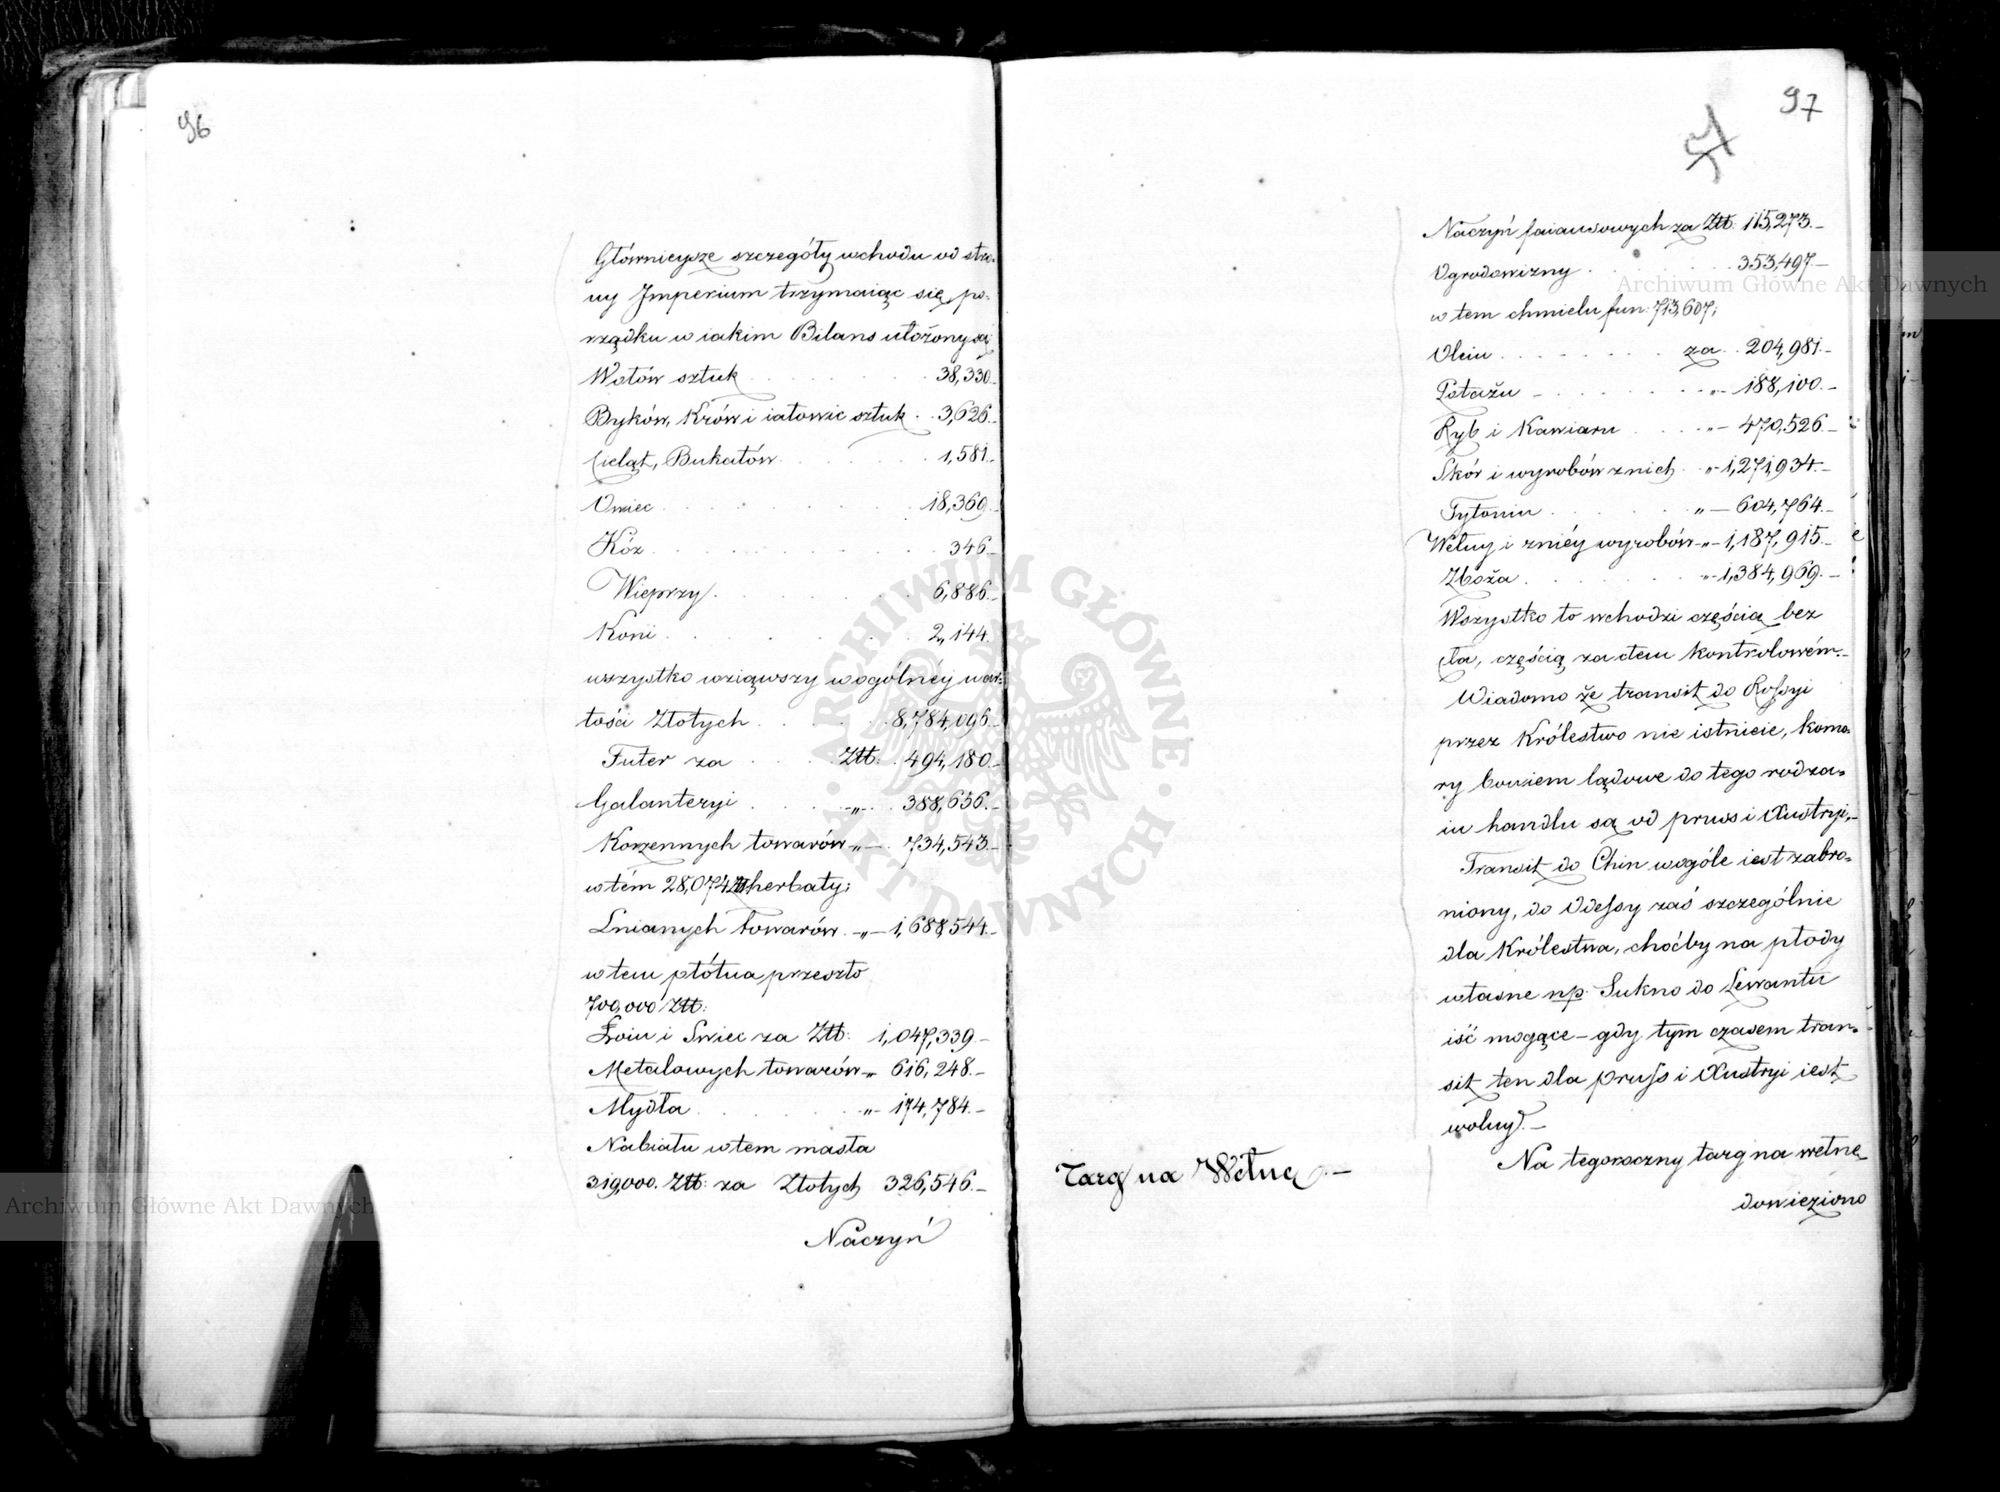 96
Główniejsze szczegóły wchodu od stro-
ny Imperium trzymaiąc się po-
rządku w iakim Bilans ułożony są
Wołów sztuk . . . . . . 38,330.-
Byków, Krów i iałowic sztuk . . 3,626.-
Cieląt, Bukatów . . . . . . 1,581.-
Owiec . . . . . . . . 18,369.
Kóz . . . . . . . . 346.-
Wieprzy . . . . . . . 6,886.-
Koni . . . . . . . 2,144.
wszystko wziąwszy w ogólnéy war-
tości Złotych . . . . . 8,784,096.-
Futer za . . . . Złł: . 494,180.-
Galanteryi . . . . -„- . 388,656.-
Korzennych towarów -„- . 734,543.-
w tém 28,074 ℔ herbaty;
Lnianych towarów . -„- 1,688,544.-
w tem płótna przeszło
700,000 Złł:
Łoiu i Swiec za Złł: 1,047,339.-
Metalowych towarów -„ 616,248.-
Mydła . . . . . „- 174,784.-
Nabiału w tem masła
319,000. Złł: za Złotych 326,546.-
Naczyń
97
57
Naczyń faiansowych za Złł: 115,273.-
Ogrodowizny . . . . . . 353,497.-
w tem chmielu fun: 713,607;
Oleiu . . . . . . . za . . 204,981.-
Potażu - . . . . . . „- 188,100.-
Ryb i Kawiaru . . . . „- 470,526.-
Skór i wyrobów z nich . „- 1,271,934.-
Tytoniu . . . . . . „- 604,764.-
Wełny i zniéy wyrobów -„- 1,187,915.-
Zboża . . . . . . „- 1,384,969.-
Wszystko to wchodzi częścią bez
cła, częścią za cłem kontrolowém.-
Wiadomo że transit do Rossyi
przez Królestwo nie istnieie, komo-
ry bowiem lądowe do tego rodza-
iu handlu są od pruss i Austryi,-
Transit do Chin wogóle iest zabro-
niony, do Odessy zaś szczególnie
dla Królestwa, choćby na płody
własne np. Sukno do Lewantu
iść mogące - gdy tym czasem tran-
sit ten dla pruss i Austryi iest
wolny. -
Targ na Wełnę. -
Na tegoroczny targ na wełnę
dowieziono
Archiwum Główne Akt Dawnych
Archiwum Główne Akt Dawnych
ARCHIWUM GŁÓWNE AKT DAWNYCH